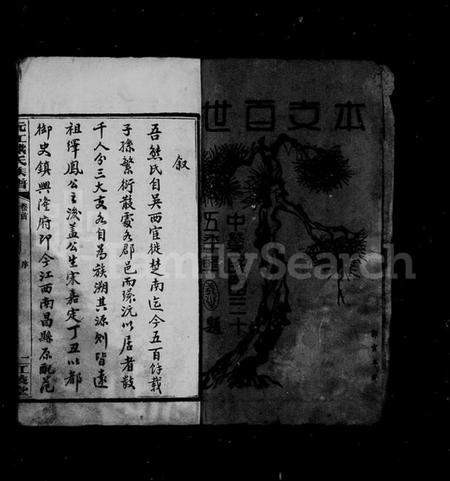 本支百世
中華
五年
三十
題
FamilySearch
敘
吾熊氏自吳西宦徙楚南迄今五百餘載
子孫繁衍散處各郡邑而環沅以居者數
千人分三大支各自為族溯其源則皆遠
祖繹鳳公主後蓋公生宋嘉定丁丑以都
御史鎮興隆府即今江西南昌縣原配范
沅江熊氏族譜
卷首
序